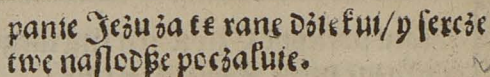 panie Jezu za tę ranę dziekui/y serczе
twe naslodße poczaluie.